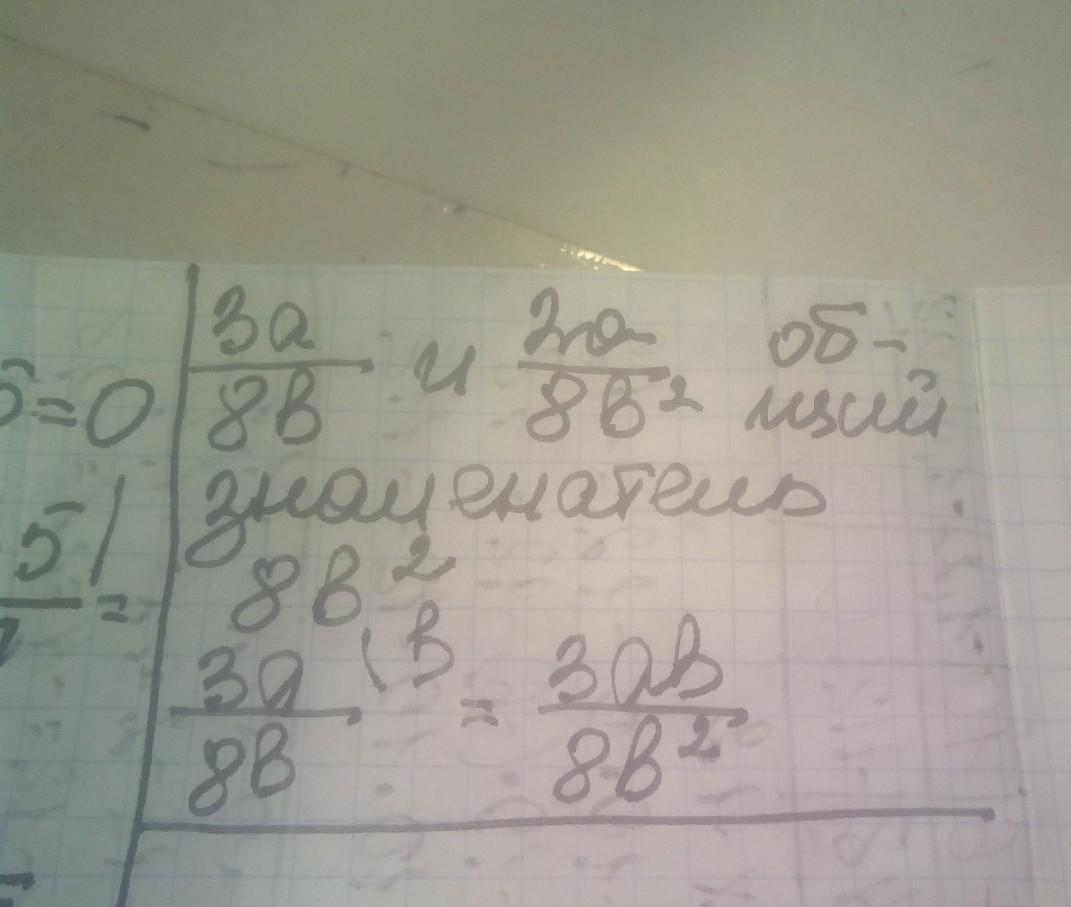 3a/8b и 2a/8b² об-
щий
знаменатель
8b²
3a/8b (b = 3ab/8b²
=0
5/
=